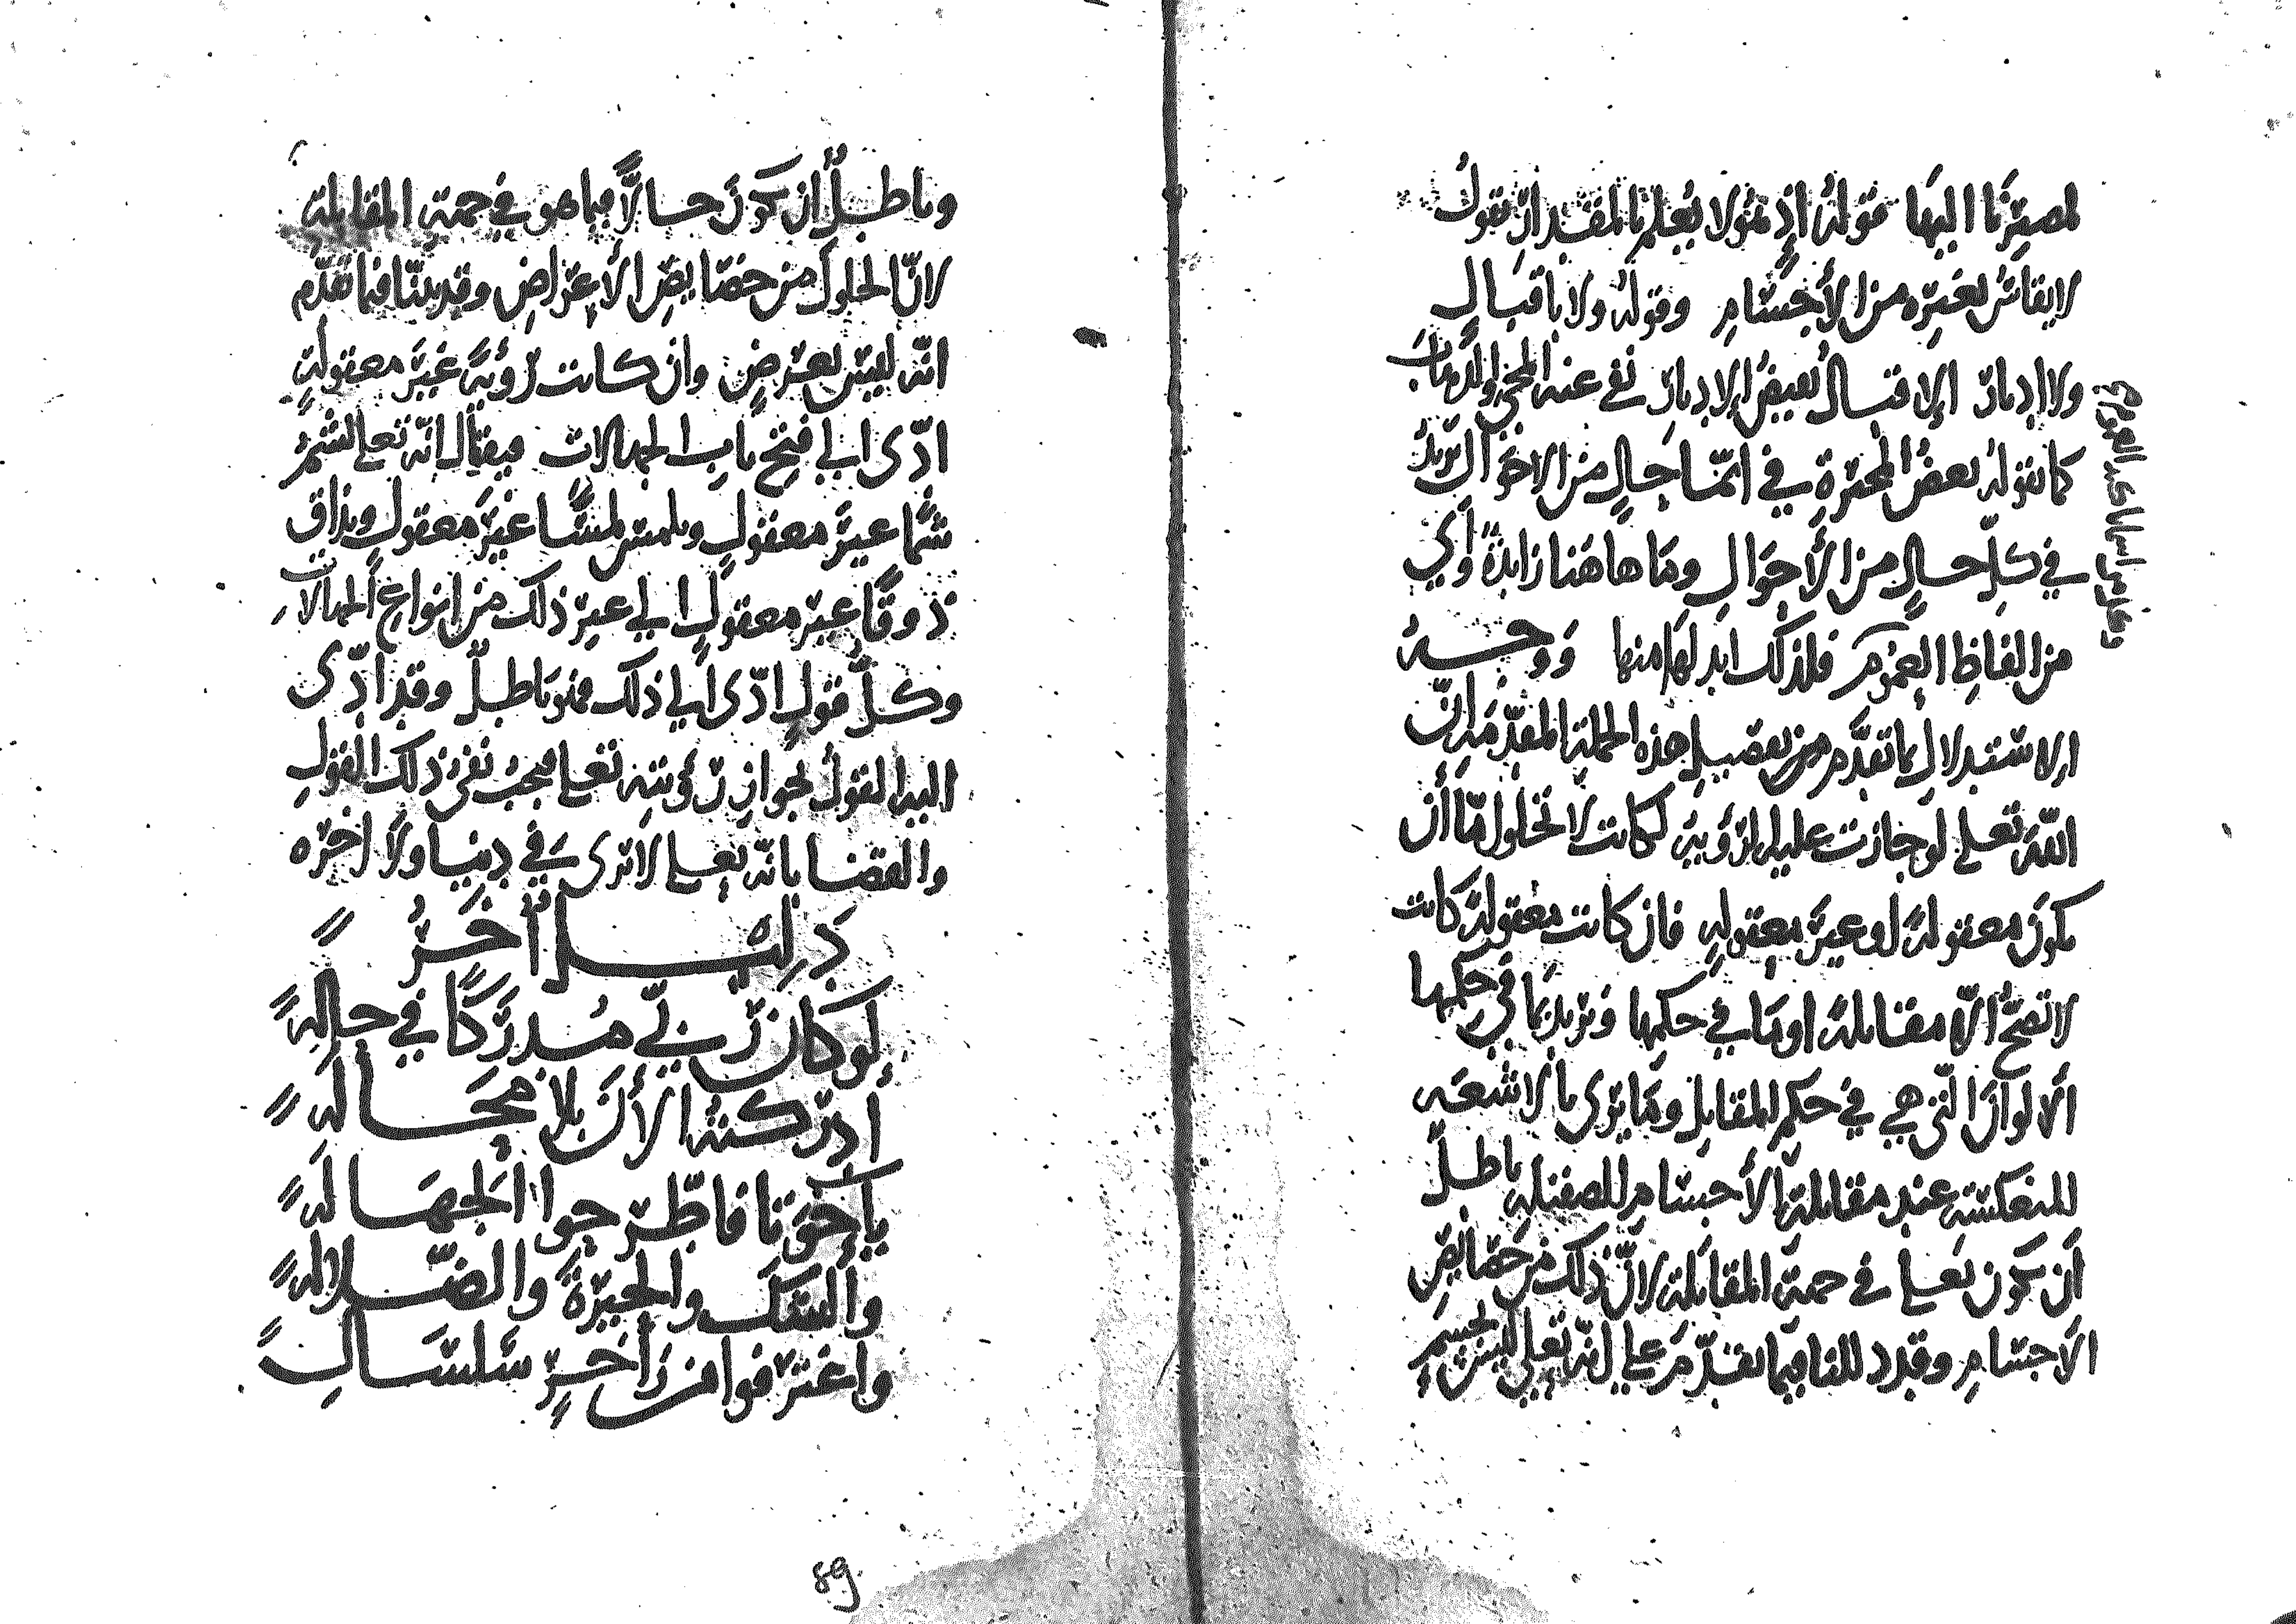 لمصيرنا اليها قوله إذ هو لا يُعلم بالمقدار نقول
لا يقاس بغيره من الأجسام وقوله ولا باقبال
ولا ادبار الإقبال نقيض الإدبار نفى عنه المجي والذهاب
كما يقوله بعض المجبرة في ايّما حال من الاحوال نريد
في كلّ حال من الأحوال وما هاهنا زايدة وأي
من الفاظ العموم فلذلك ابدلها منها ووجه
الاستدلال بما تقدّم من تفصيل هذه الجملة المقدّمة انّ
الله تعلى لو جازت عليه الرؤية لكانت لا تخلوا امّا أن
تكون معقولةً او غير معقولةٍ فان كانت معقولة كانت
لا تصحّ الّا مقابلةً او ما في حكمها ونريد بما في حكمها
الالوان الّتي هي في حكم المقابل وما يرى بالاشعة
المنعكسة عند مقابلة الأجسام الصقيلة باطلٌ
أن يكون تعلى في جهة المقابلة لانّ ذلك من خصائص
الأجسام وقد دللنا فيما تقدّم على انّه تعلى ليس بجسمٍ
وباطلٌ ان يكون حالّاً فيما هو في جهة المقابلة
لانّ الحلول من خصايص الأعراض وقد بيّنّا فيما تقدّم
انّه ليس بعرضٍ وان كانت رؤيةً غير معقولةٍ
ادّى الى فتح باب الجهالات فيقال انّه تعلى يشمّ
شمّاً غير معقولٍ ويلمس لمسًا غير معقولٍ ويذاق
ذوقًا غير معقولٍ الى غير ذلك من انواع الجهالات
وكلّ قولٍ ادّى الى ذلك فهو باطلٌ وقد ادّى
اليه القول بجواز رؤيته تعلى فيجب نفي ذلك القول
والقضا بانّه تعلى لا يرى في دنيا ولا اخره
دليلٌ آخر
لو كان ربّي مُدركًا في حاله
أدركته الأن بلا محاله
يا اخوتا فاطّرحوا الجهاله
والشك والحيرة والضّلاله
واغترفوا من زاخرٍ سلسال
89